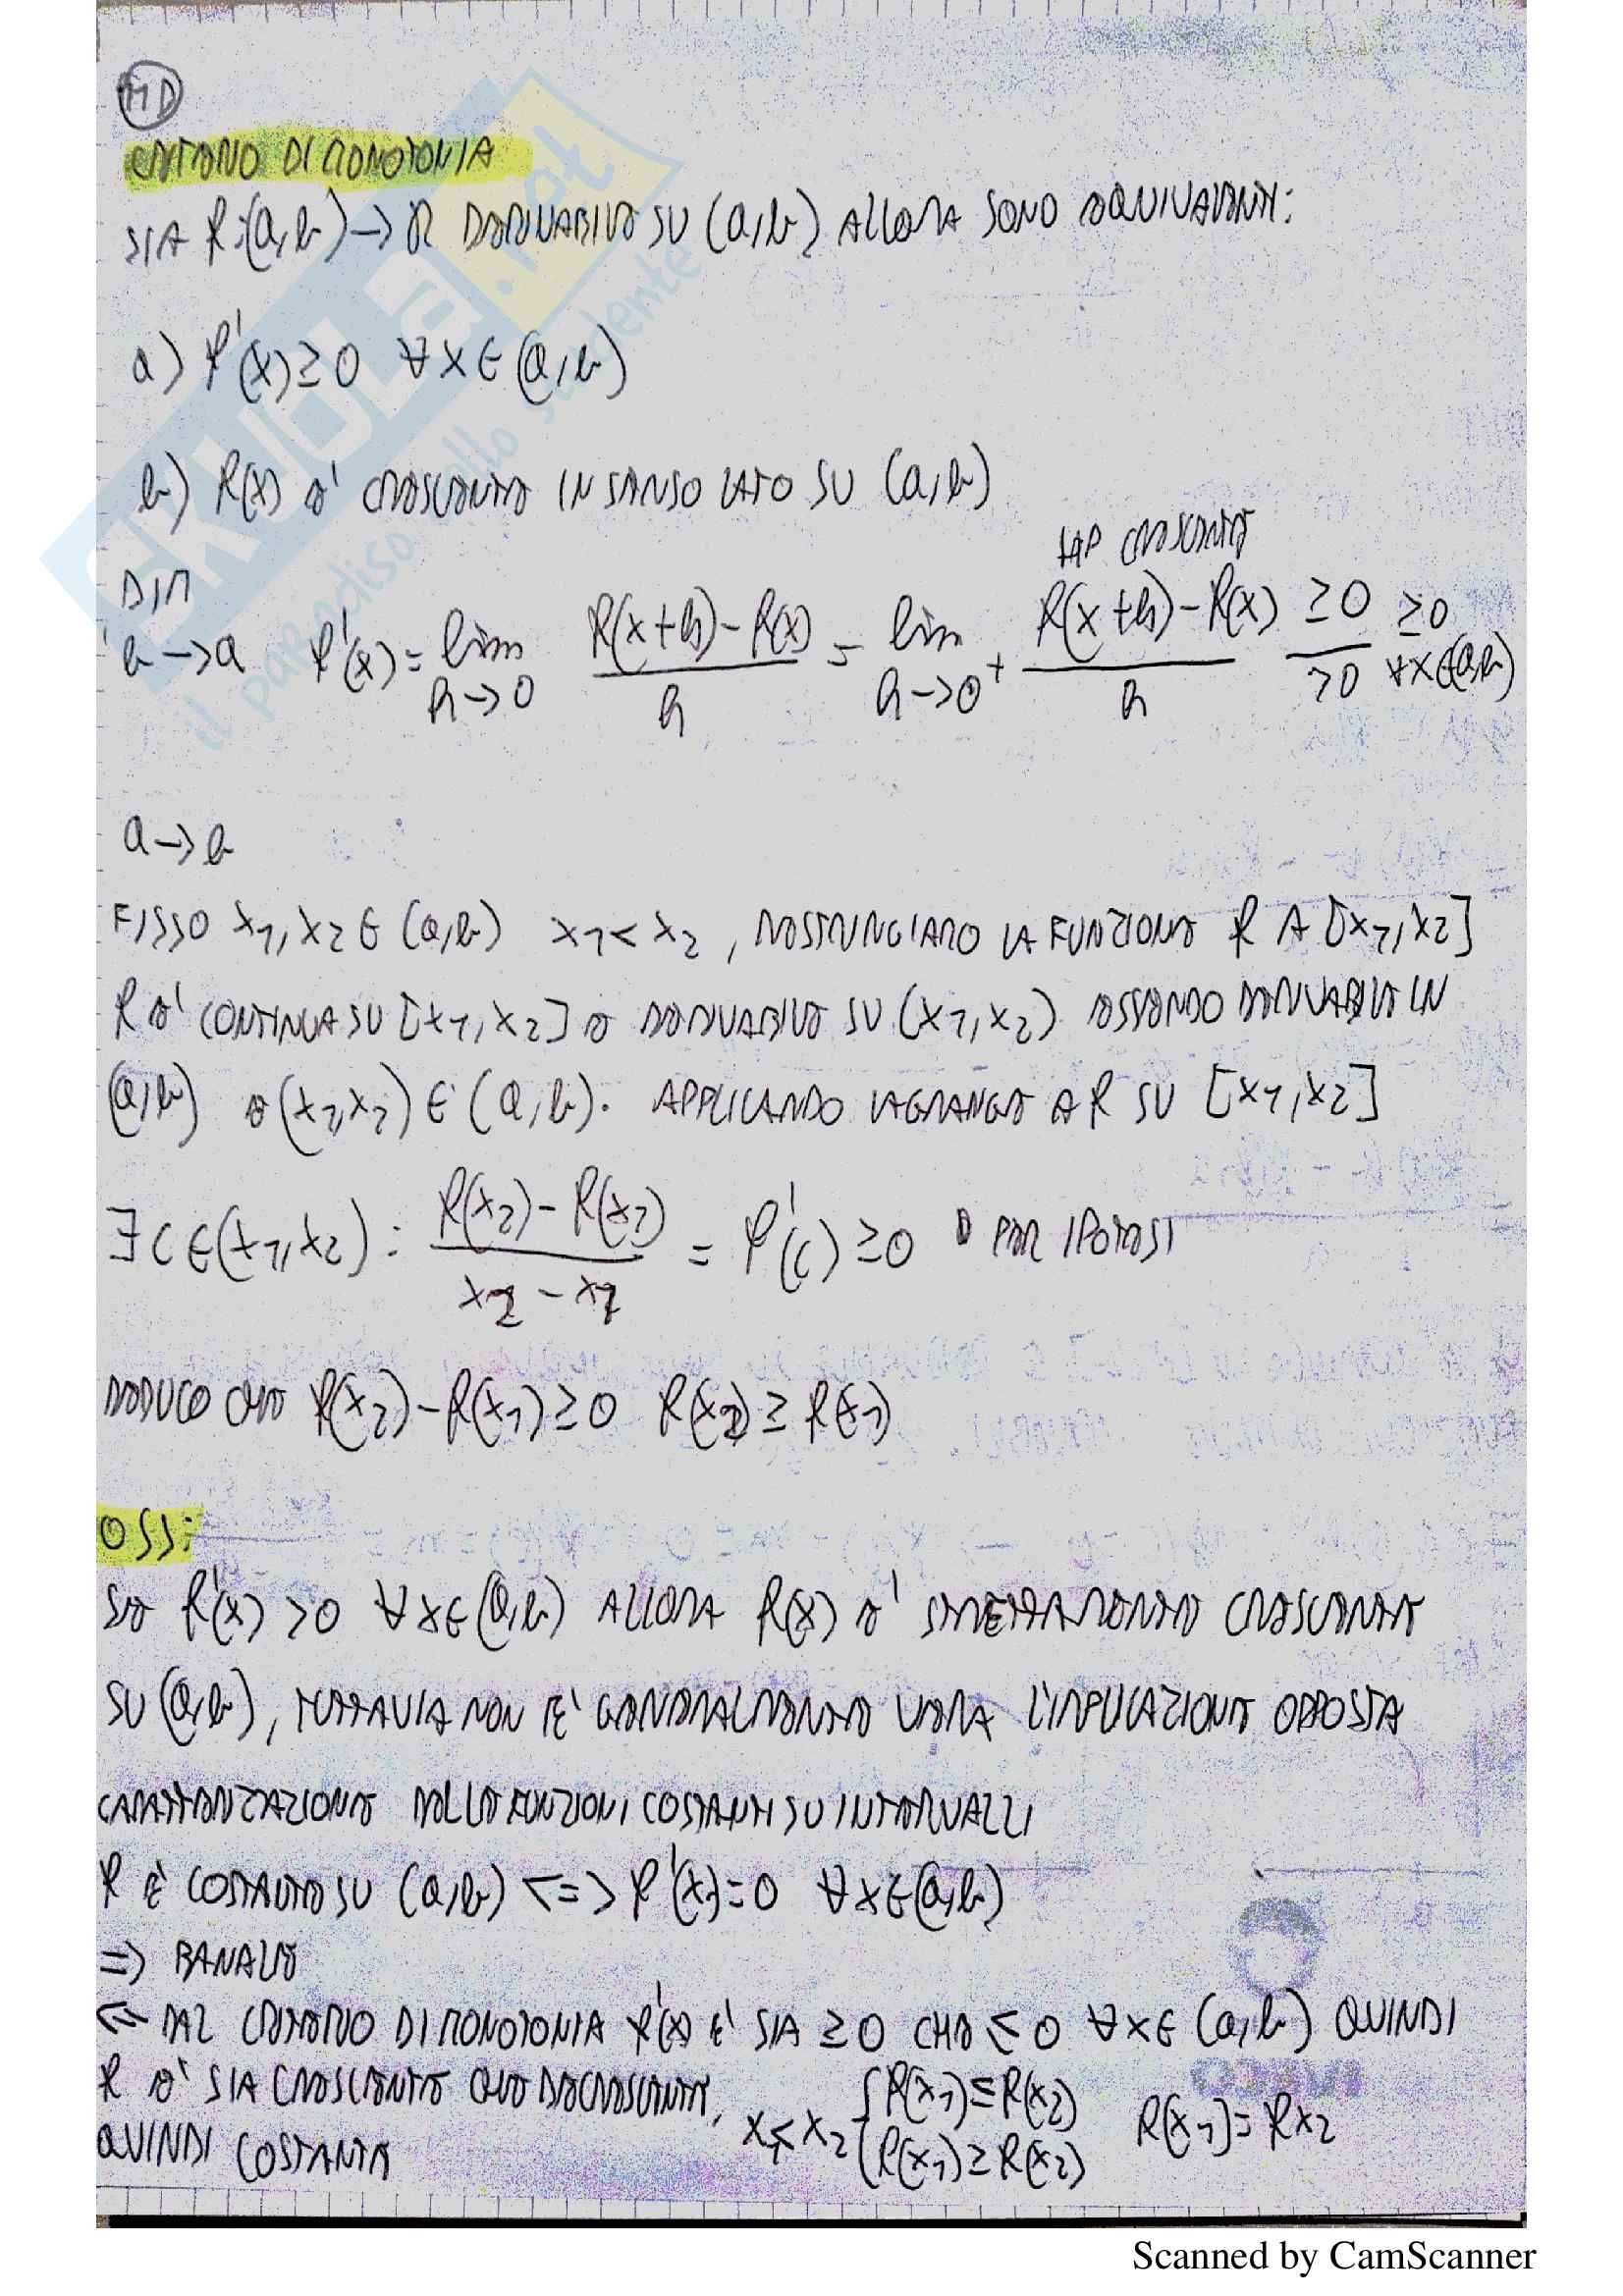 MD
CRITERIO DI MONOTONIA
SIA f:(a,b)→ℝ DERIVABILE SU (a,b) ALLORA SONO EQUIVALENTI:
a) f'(x)≥0 ∀x∈(a,b)
b) f(x) E' CRESCENTE IN SENSO LATO SU (a,b)
DIM
HP CRESCENTE
b→a f'(x)= lim h→0 (f(x+h)-f(x))/h = lim h→0⁺ (f(x+h)-f(x))/h ≥0/>0 ≥0 ∀x∈(a,b)
a→b
FISSO x1,x2∈(a,b) x1<x2, RESTRINGIAMO LA FUNZIONE f A [x1,x2]
f E' CONTINUA SU [x1,x2] E DERIVABILE SU (x1,x2) ESSENDO DERIVABILE IN
(a,b) E (x1,x2)∈(a,b). APPLICANDO LAGRANGE A f SU [x1,x2]
∃c∈(x1,x2): (f(x2)-f(x1))/(x2-x1) = f'(c)≥0 PER IPOTESI
DEDUCO CHE f(x2)-f(x1)≥0 f(x2)≥f(x1)
OSS:
SE f'(x)>0 ∀x∈(a,b) ALLORA f(x) E' STRETTAMENTE CRESCENTE
SU (a,b), TUTTAVIA NON E' GENERALMENTE VERA L'IMPLICAZIONE OPPOSTA
CARATTERIZZAZIONE DELLE FUNZIONI COSTANTI SU INTERVALLI
f E' COSTANTE SU (a,b) <=> f'(x)=0 ∀x∈(a,b)
=> BANALE
<= DAL CRITERIO DI MONOTONIA f'(x) E' SIA ≥0 CHE ≤0 ∀x∈(a,b) QUINDI
f E' SIA CRESCENTE CHE DECRESCENTE,
QUINDI COSTANTE
x1<x2 { f(x1)≤f(x2)
f(x1)≥f(x2)
f(x1)=fx2
SKUOLA.net
il paradiso dello studente
Scanned by CamScanner